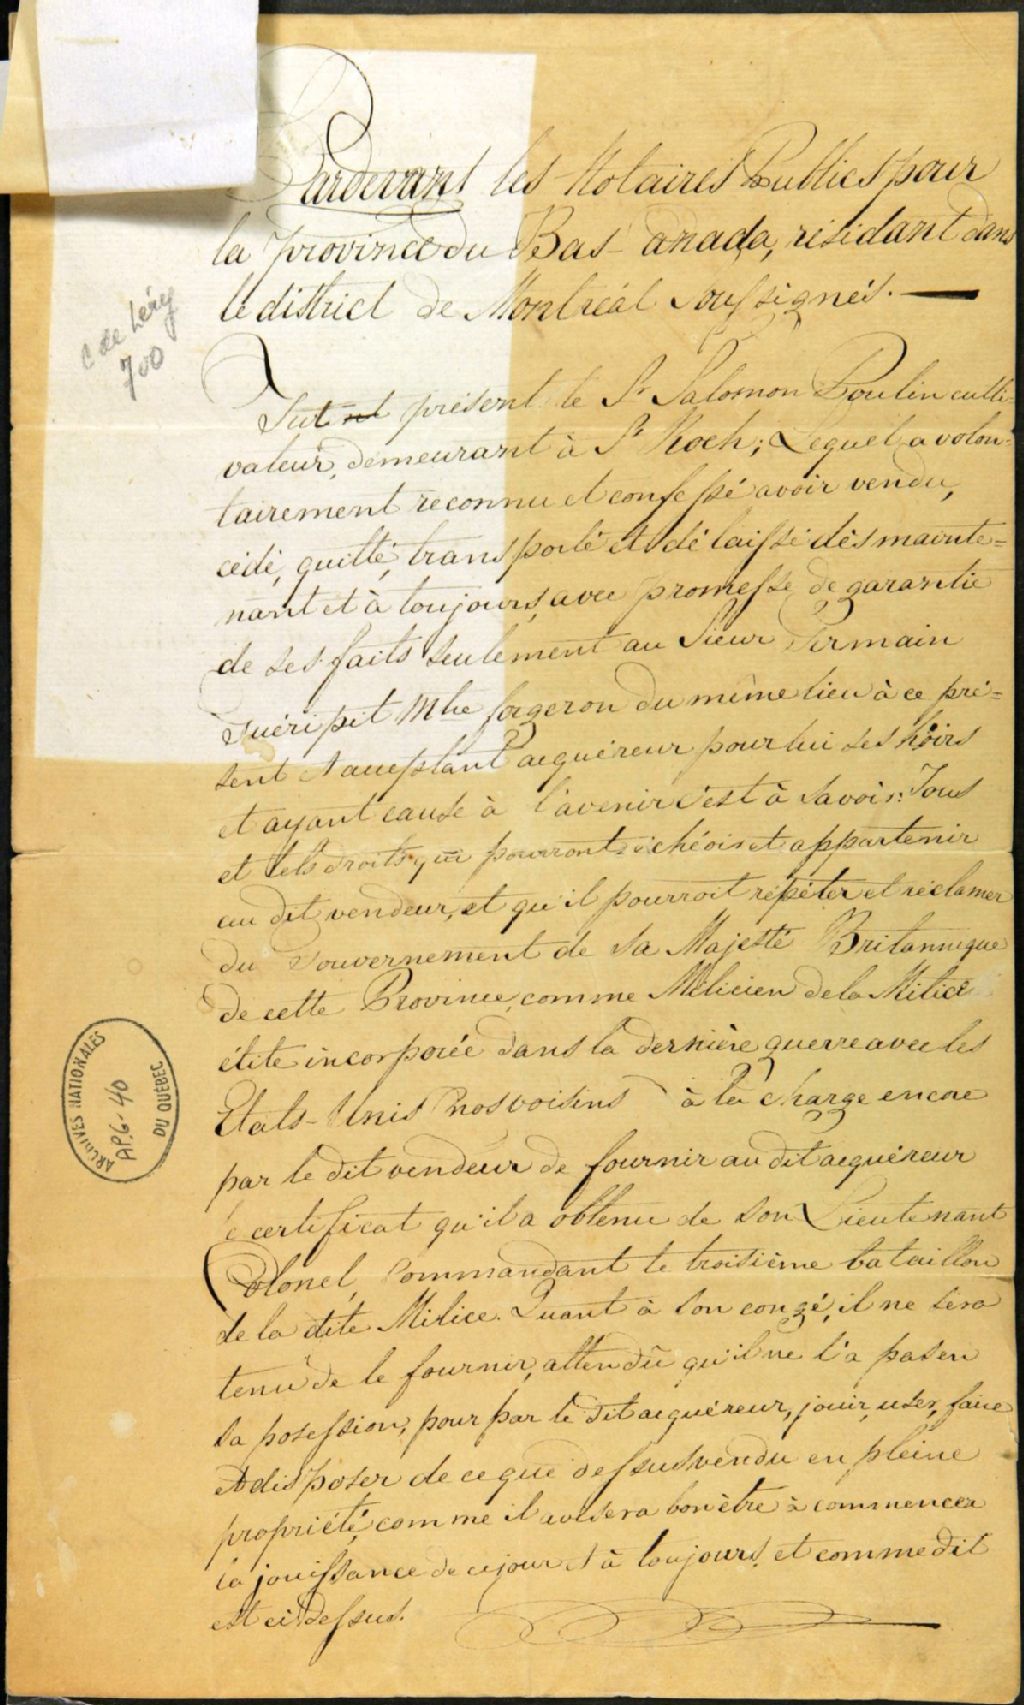 Pardevant les Notaires Publics pour
la province du Bas-Canada, résidant dans
le district de Montréal soussignés.
C de Léry
700
Fut présent le Sr Salomon Poulin culti-
vateur, demeurant à St Roch; Lequel a volon-
tairement reconnu et confessé avoir vendu,
cédé, quitté, transporté et délaissé dès mainte=
nant et à toujours, avec promesse de garantie
de ses faits seulement au Sieur Germain
Guéripit Mtre forgeron du même lieu à ce pré=
sent et acceptant acquéreur pour lui ses hoirs
et ayant cause à l'avenir c'est à savoir: Tous
et tels droits qui pourront échéoir et appartenir
au dit vendeur, et qu'il pourroit répéter et réclamer
du Gouvernement de Sa Majesté Britannique
de cette Province, comme Milicien de la Milice
élite incorporée dans la dernière guerre avec les
Etats-Unis nos voisins à la charge encore
par le dit vendeur de fournir au dit acquéreur
le certificat qu'il a obtenu de son Lieutenant
Colonel, Commandant le troisième bataillon
de la dite Milice. Quant à son congé, il ne sera
tenu de le fournir, attendu qu'il ne l'a pas en
sa posession, pour par le dit acquéreur, jouir, user, faire
et disposer de ce que dessus vendu en pleine
propriété, comme il avisera bon être à commencer
la jouissance de ce jour et à toujours, et comme dit
est ci dessus.
ARCHIVES NATIONALES
DU QUÉBEC
AP.G-40